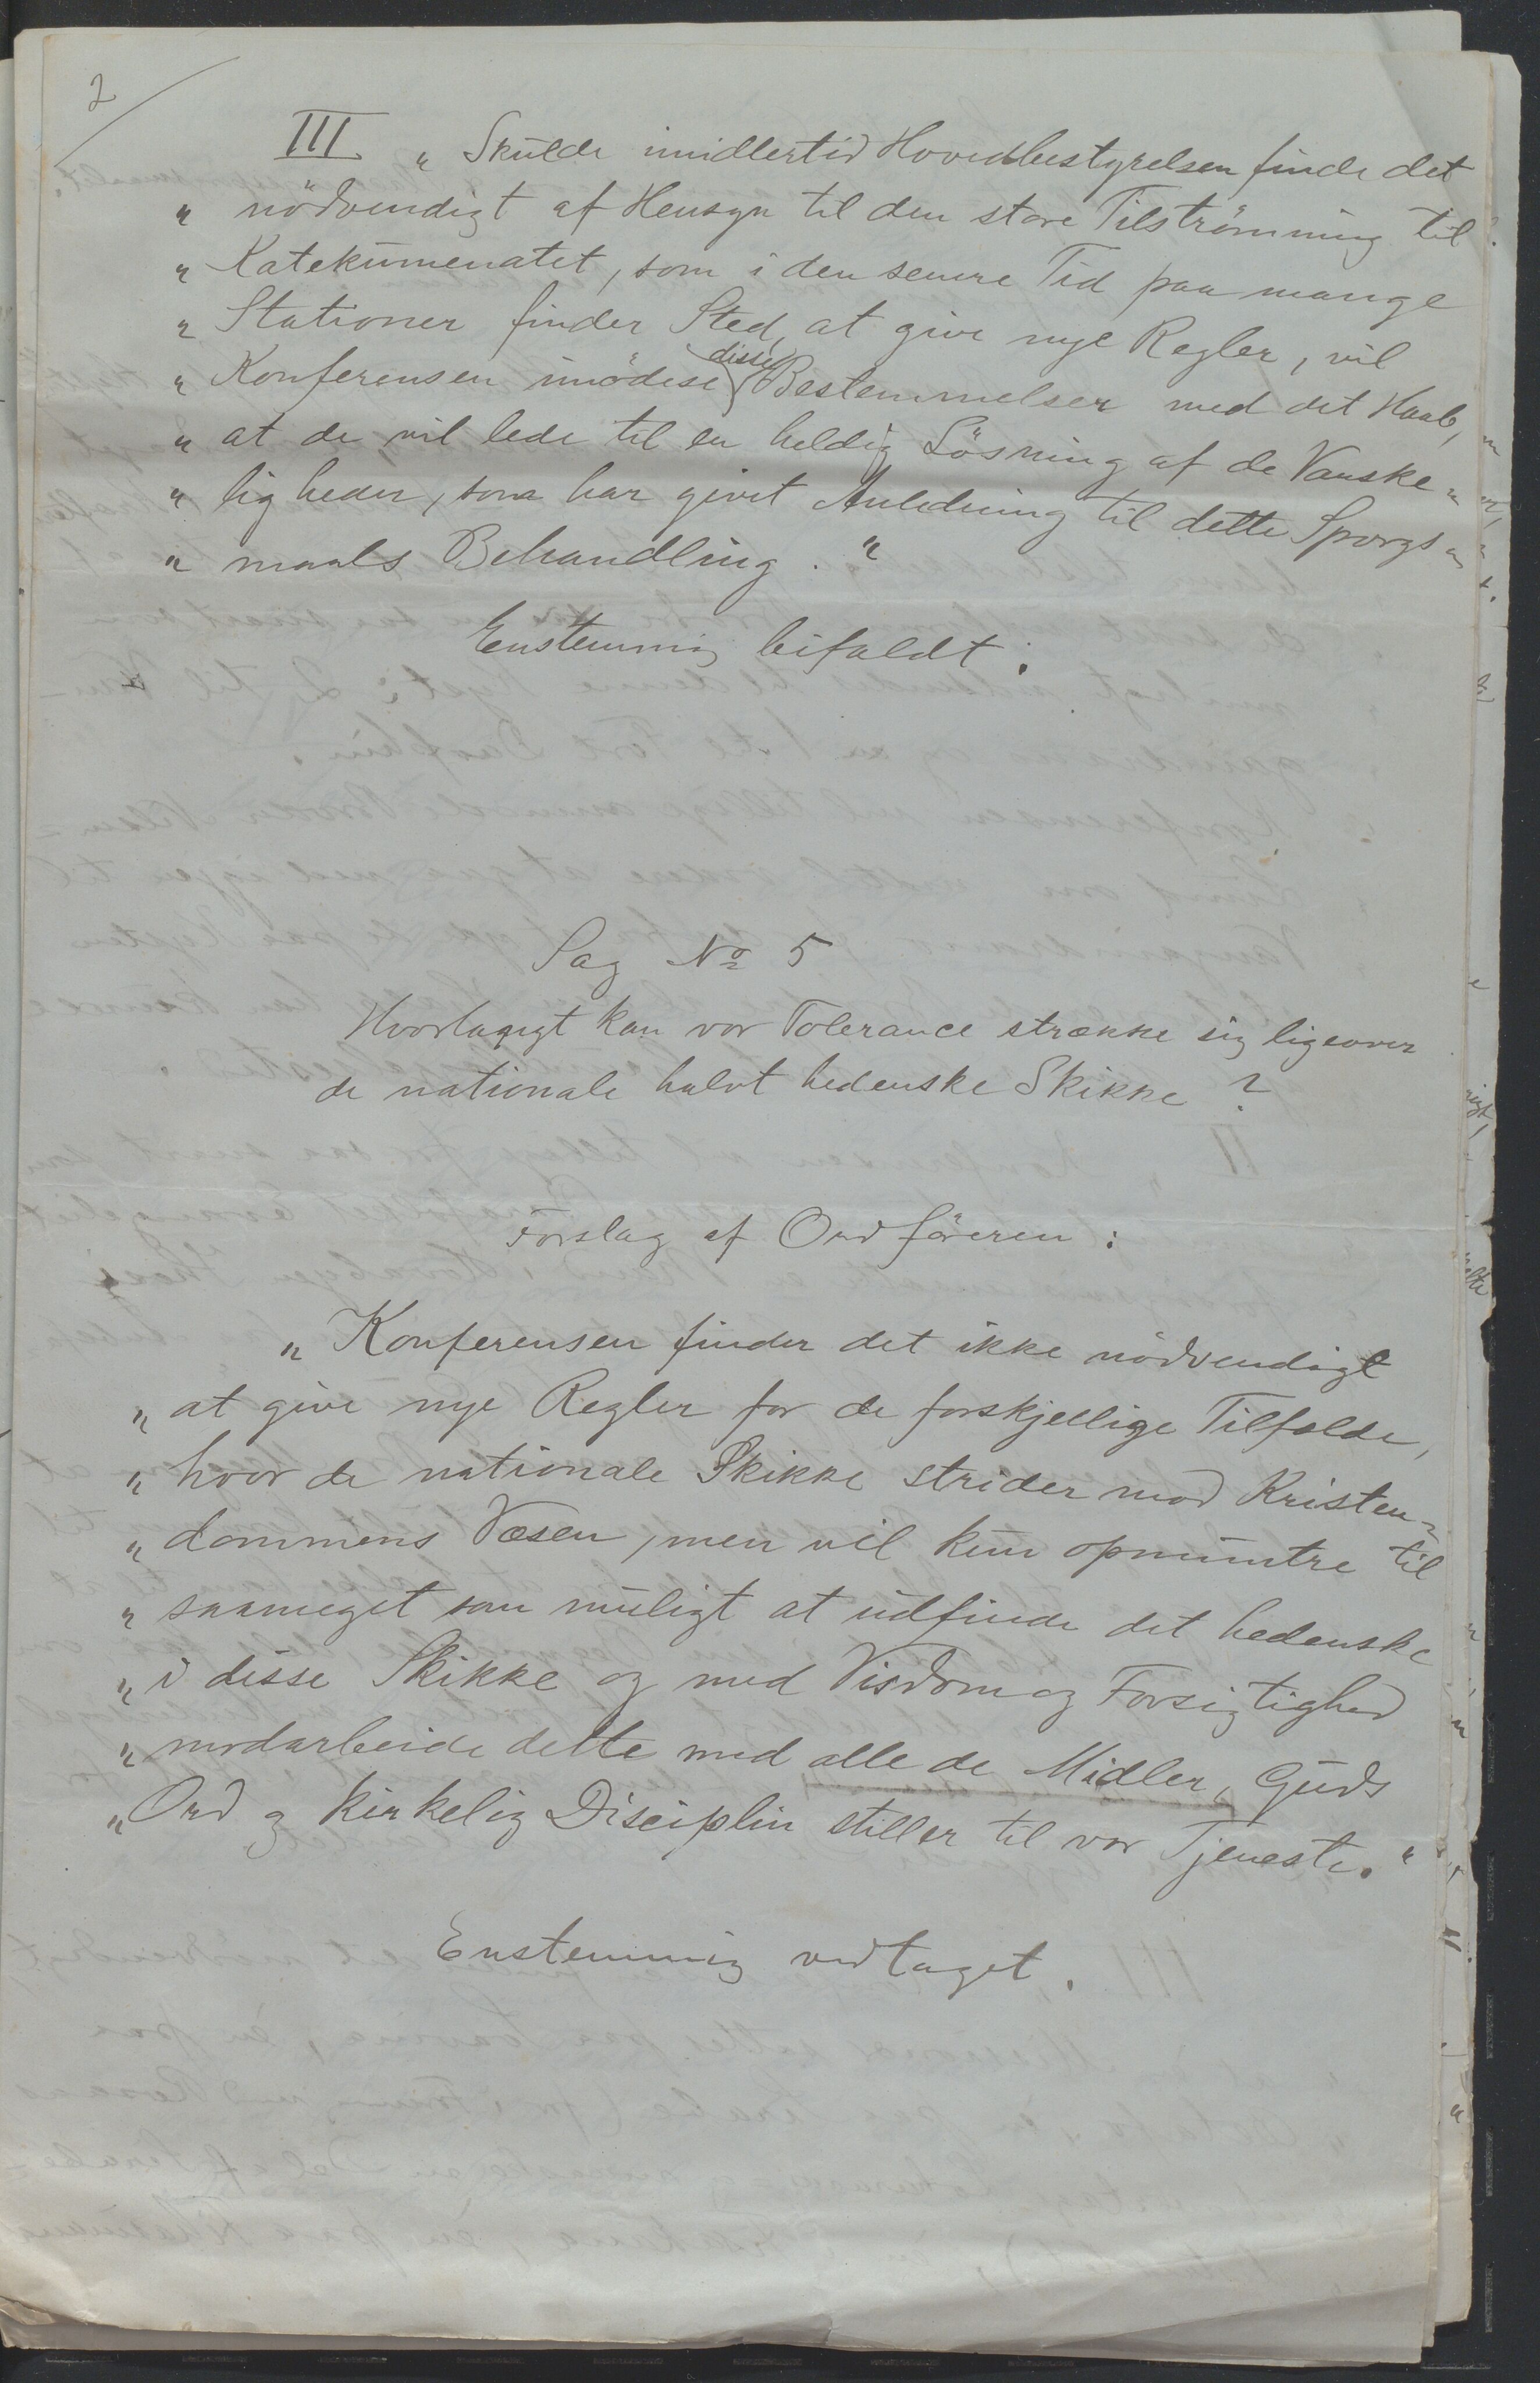 2
III „ Skulde imidlertid Hovedbestyrelsen finde det
„ nödvendigt af Hensyn til den store Tilströmning til
„ Katekumenatet, som i den senere Tid paa mange
„ Stationer finder Sted, at give nye Regler, vil
„ Konferensen imödese disse Bestemmelser med det Haab,
„ at de vil lede til en heldig Lösning af de Vanske„
„ ligheder, som har givet Anledning til dette Sporgs„
„ maals Behandling. "
Enstemmig bifaldt.
Sag No 5
Hvorlangt kan vor Tolerance strække sig ligeover
de nationale halvt hedenske Skikke ?
Forslag af Ordföreren :
„ Konferensen finder det ikke nödvendigt
„ at give nye Regler for de forskjellige Tilfælde,
„ hvor de nationale Skikke strider mod Kristen„
„ dommens Væsen, men vil kun opmuntre til
„ saameget som muligt at udfinde det hedenske
„ i disse Skikke og med Visdom og Forsigtighed
„ modarbeide dette med alle de Midler, Guds
„ Ord og kirkelig Disciplin stiller til vor Tjeneste. "
Enstemmig vedtaget.